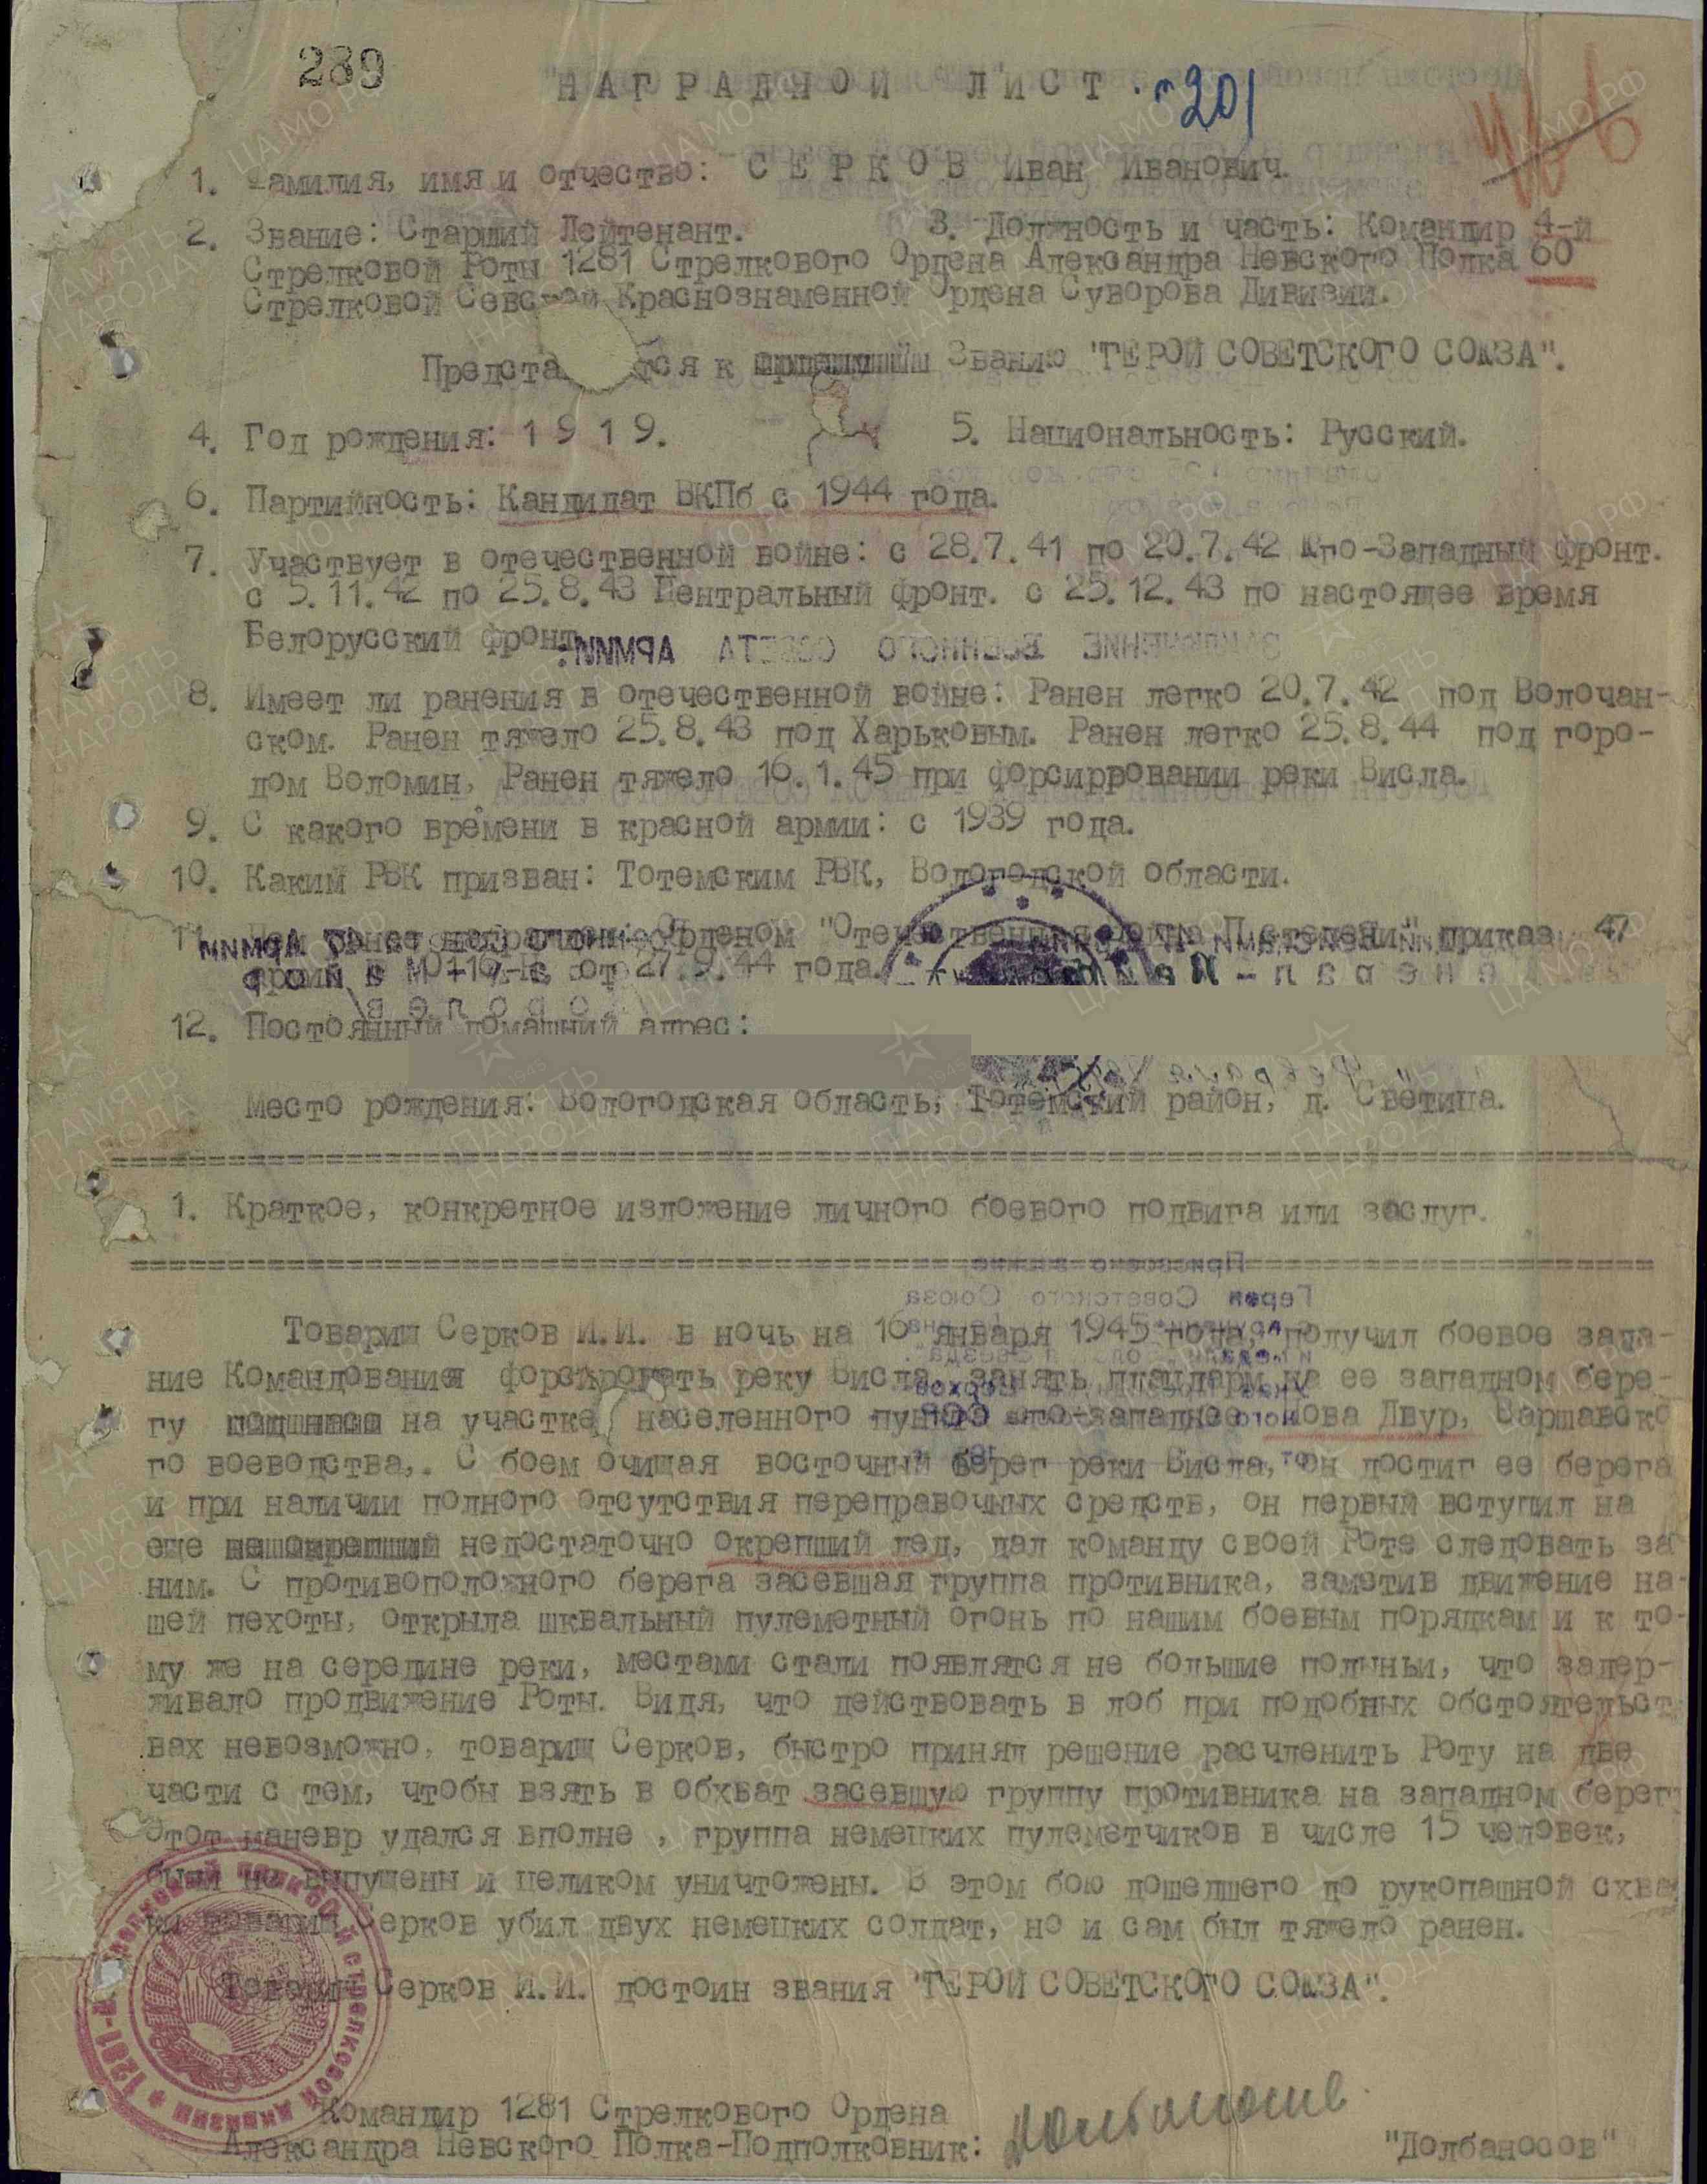 289
"НАГРАДНОЙ ЛИСТ"
201
1. Фамилия, имя и отчество: СЕРКОВ Иван Иванович.
2. Звание: Старший Лейтенант. 3. Должность и часть: Командир 4-й
Стрелковой Роты 1281 Стрелкового Ордена Александра Невского Полка 60
Стрелковой Севской Краснознаменной Ордена Суворова Дивизии.
Предста тся к Званию "ГЕРОЙ СОВЕТСКОГО СОЮЗА".
4. Год рождения: 1919. 5. Национальность: Русский.
6. Партийность: Кандидат ВКПб с 1944 года.
7. Участвует в отечественной войне: с 28.7.41 по 20.7.42 Юго-Западный фронт.
с 5.11.42 по 25.8.43 Центральный фронт. с 25.12.43 по настоящее время
Белорусский фронт.
8. Имеет ли ранения в отечественной войне: Ранен легко 20.7.42 под Волочан-
ском. Ранен тяжело 25.8.43 под Харьковым. Ранен легко 25.8.44 под горо-
дом Воломин, Ранен тяжело 16.1.45 при форсиррвовании реки Висла.
9. С какого времени в красной армии: с 1939 года.
10. Каким РВК призван: Тотемским РВК, Вологодской области.
11. Чем ранее награжден: Орденом "Отечественная война П степени" приказ 47
армии от 27.9.44 года.
12. Постоянный домашний адрес:
Место рождения: Вологодская область, Тотемский район, д. Светица.
1. Краткое, конкретное изложение личного боевого подвига или заслуг.
Товарищ Серков И.И. в ночь на 16 января 1945 года, получил боевое зада-
ние Командования форсировать реку Висла, занять плацдарм на ее западном бере-
гу на участке населенного пункта юго-западнее Нова Двур, Варшавско
го воеводства,. С боем очищая восточный берег реки Висла, он достиг ее берега
и при наличии полного отсутствия переправочных средств, он первый вступил на
еще недостаточно окрепший лед, дал команду своей Роте следовать за
ним. С противоположного берега засевшая группа противника, заметив движение на-
шей пехоты, открыла шквальный пулеметный огонь по нашим боевым порядкам и к то-
му же на середине реки, местами стали появлятся не большие полыньи, что задер-
живало продвижение Роты. Видя, что действовать в лоб при подобных обстоятельст
вах невозможно, товарищ Серков, быстро принял решение расчленить Роту на две
части с тем, чтобы взять в обхват засевшую группу противника на западном берегу
Этот маневр удался вполне , группа немецких пулеметчиков в числе 15 человек,
были не выпущены и целиком уничтожены. В этом бою дошедшего до рукопашной схва
ки товарищ Серков убил двух немецких солдат, но и сам был тяжело ранен.
Товарищ Серков И.И. достоин звания "ГЕРОЙ СОВЕТСКОГО СОЮЗА".
Командир 1281 Стрелкового Ордена
Александра Невского Полка-Подполковник:
"Долбаносов"